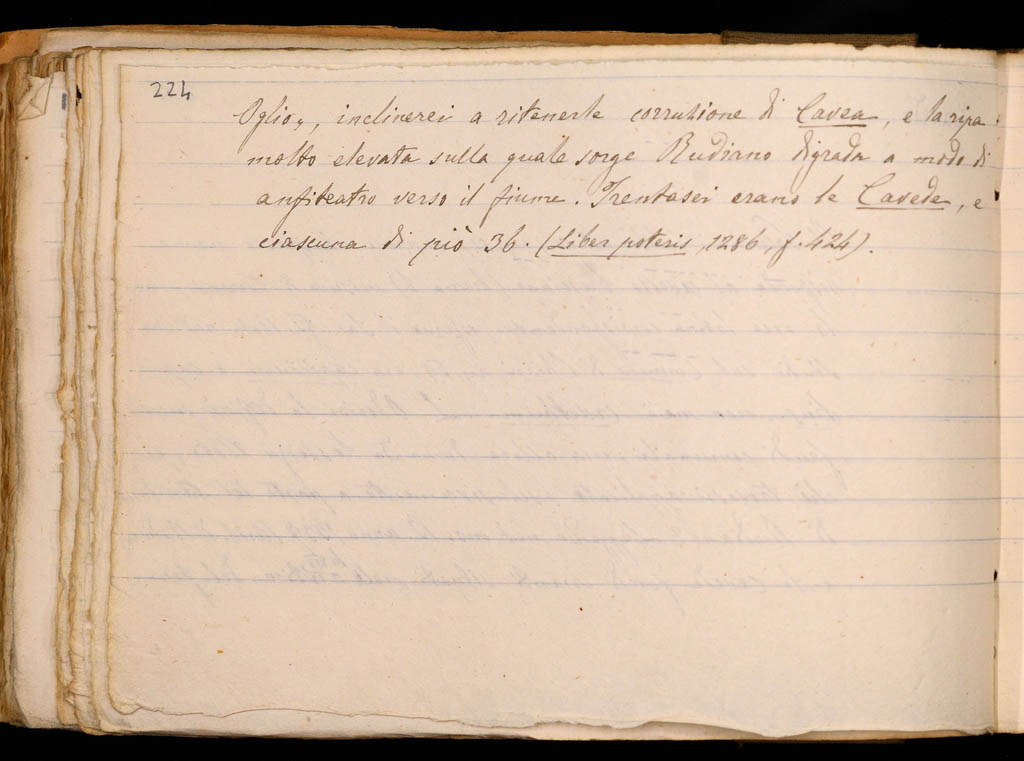 224
Oglio,, inclinerei a ritenerle corruzione di Cavea, e la ripa
molto elevata sulla quale sorge Rudiano digrada a modo di
anfiteatro verso il fiume. Trentasei erano le Cavede, e
ciascuna di piò 36. (Liber poteris 1286, f. 424).